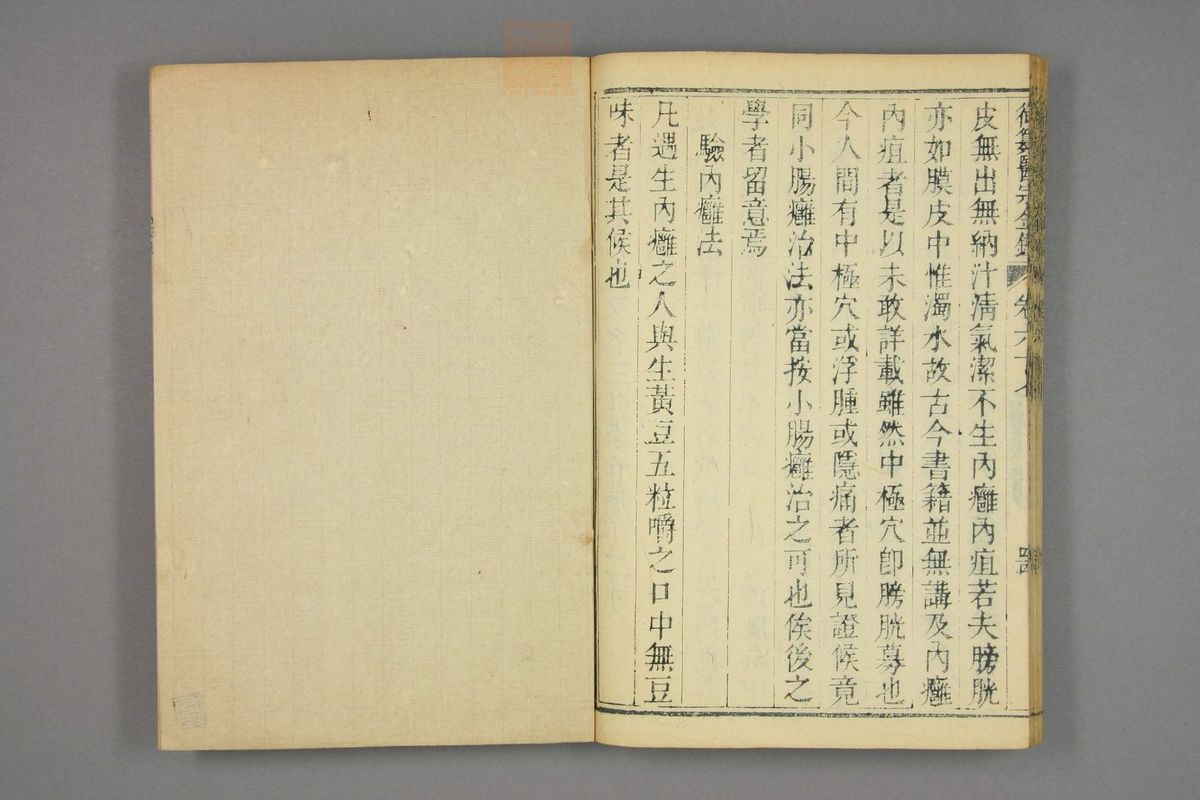 御纂醫宗金鑑 卷六十七
皮無出無納汁清氣潔不生內癰內疽若夫膀胱
亦如膜皮中惟濁水故古今書籍並無講及內癰
內疽者是以未敢詳載雖然中極穴卽膀胱募也
今人間有中極穴或浮腫或隱痛者所見證候竟
同小腸癰治法亦當按小腸癰治之可也俟後之
學者留意焉
驗內癰法
凡遇生內癰之人與生黃豆五粒嚼之口中無豆
味者是其候也